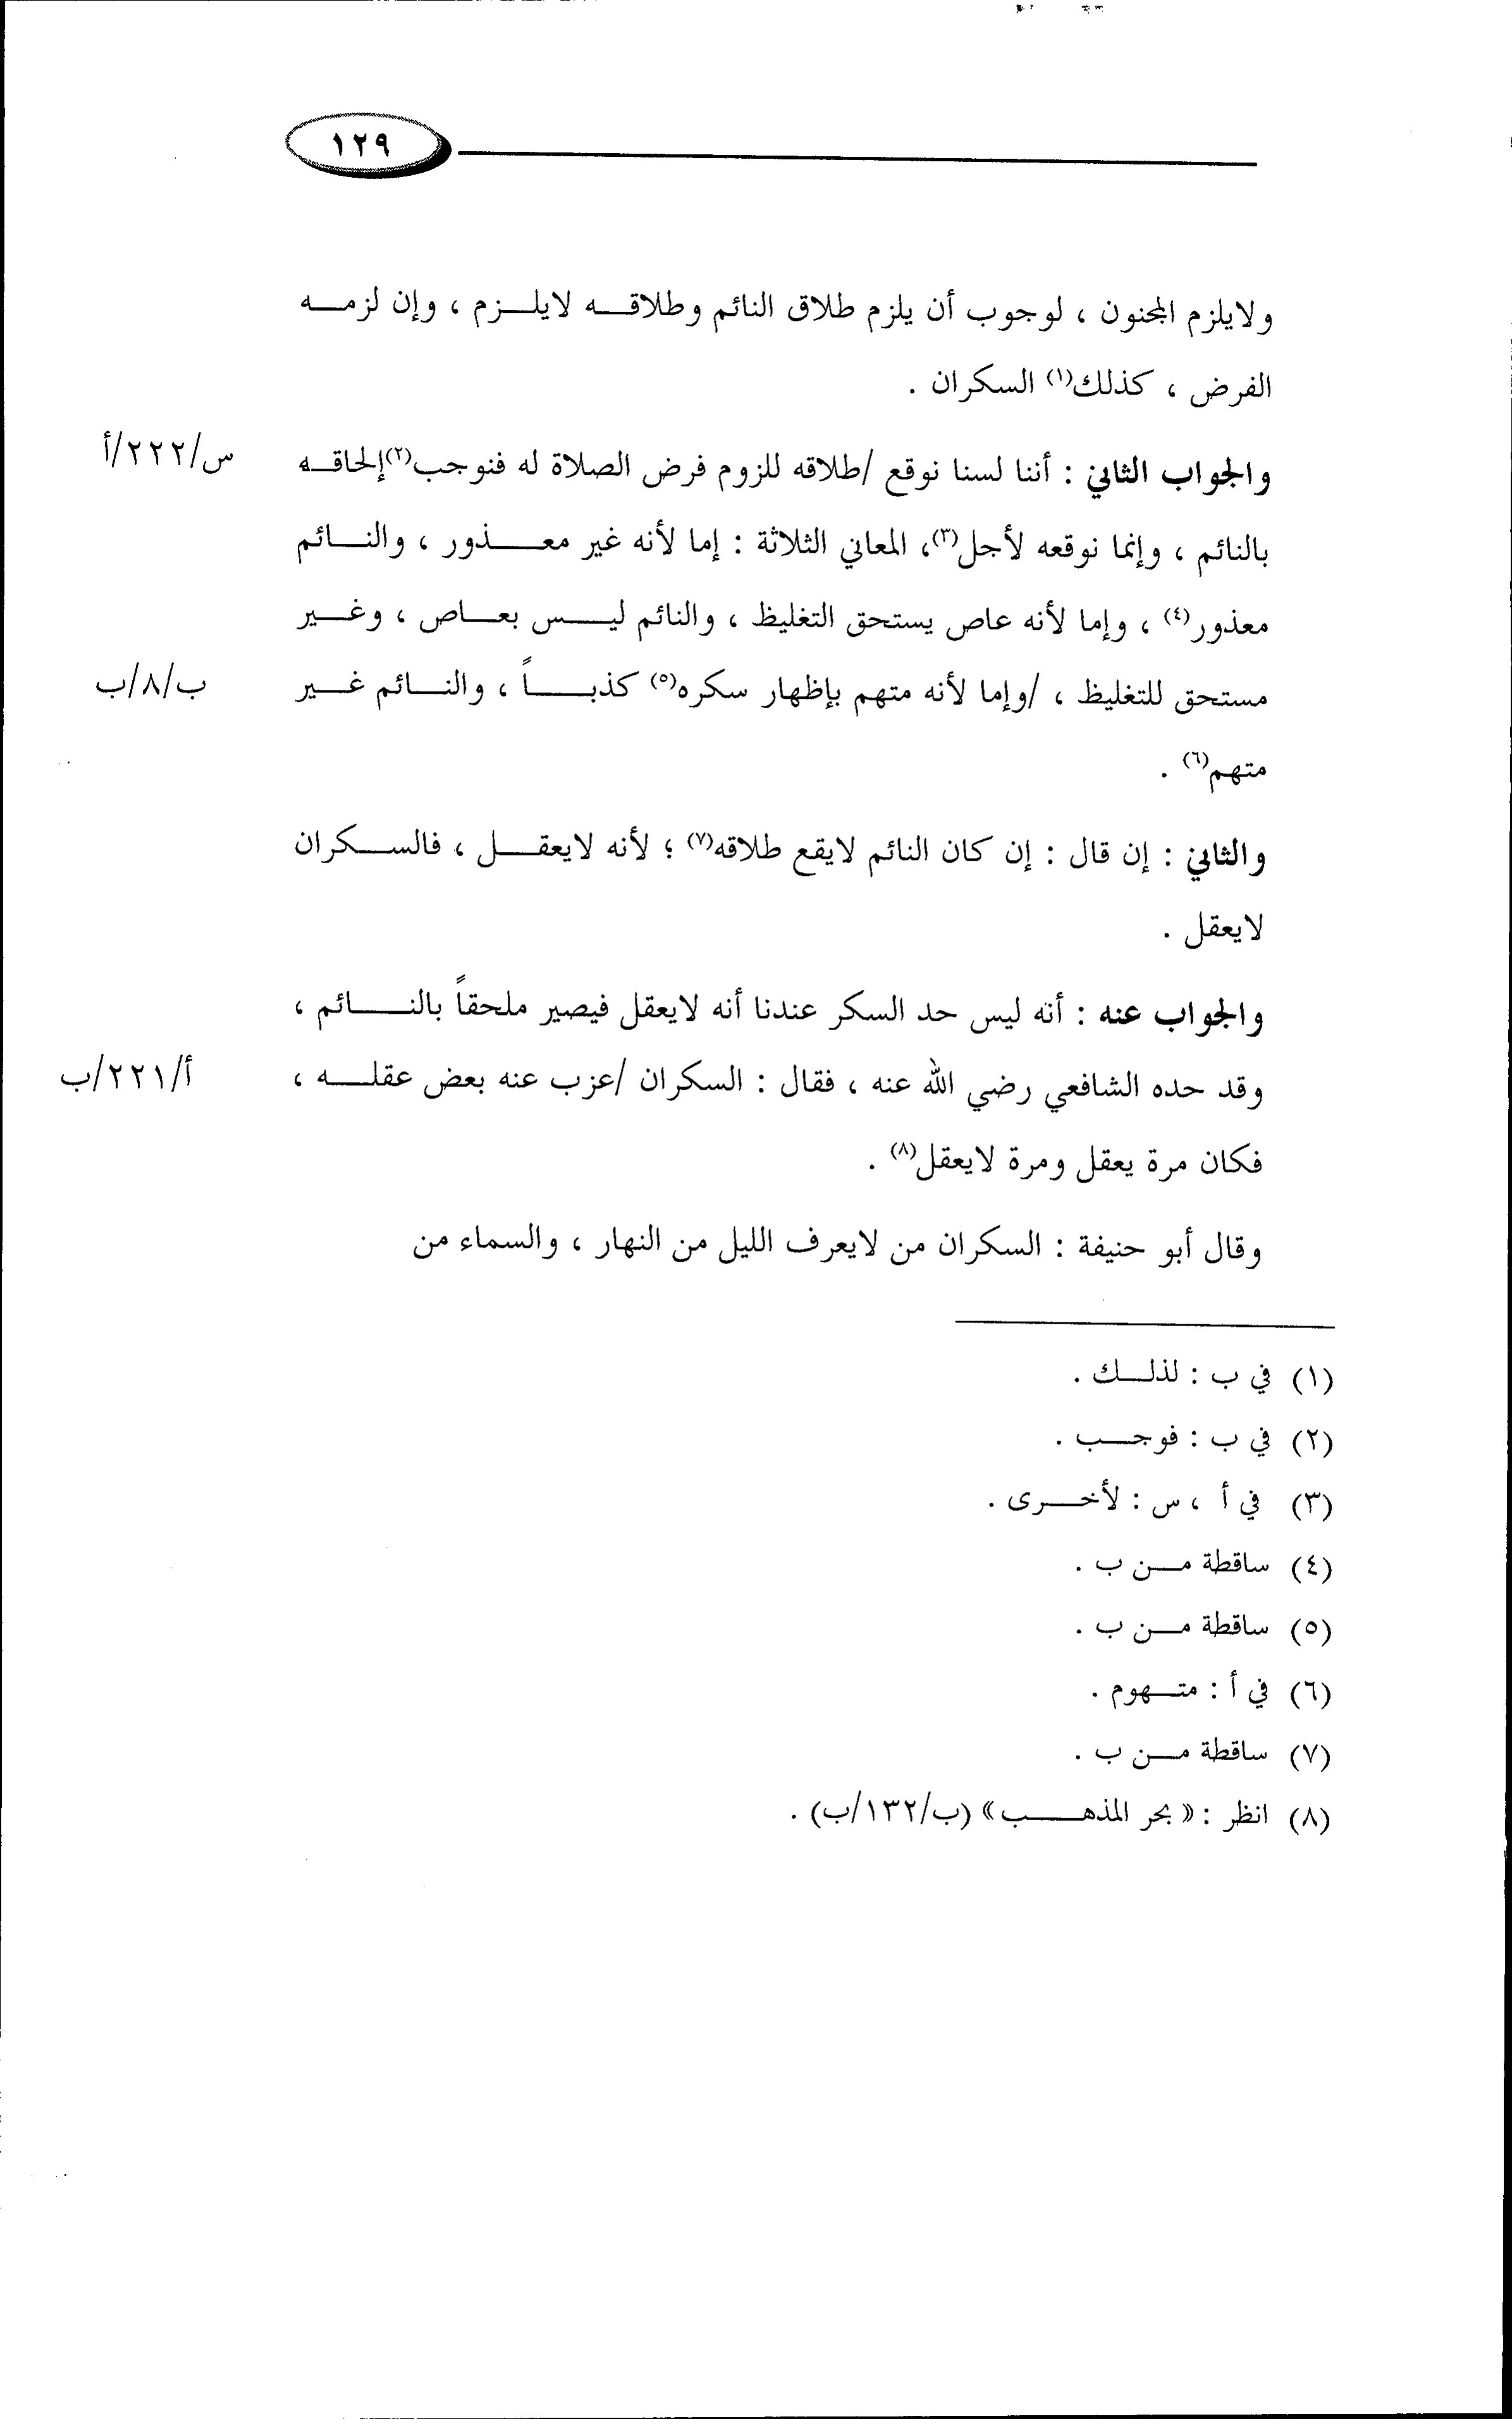 ١٢٩
ولايلزم المجنون ، لوجوب أن يلزم طلاق النائم وطلاقه لايلزم ، وإن لزمه
الفرض ، كذلك(١) السكران .
والجواب الثاني : أننا لسنا نوقع /طلاقه للزوم فرض الصلاة له فنوجب(٢)إلحاقه
س/٢٢٢/أ
بالنائم ، وإنما نوقعه لأجل(٣)، المعاني الثلاثة : إما لأنه غير معذور ، والنائم
معذور(٤) ، وإما لأنه عاص يستحق التغليظ ، والنائم ليس بعاص ، وغير
مستحق للتغليظ ، /وإما لأنه متهم بإظهار سكره(٥) كذباً ، والنائم غير
ب/٨/ب
متهم(٦) .
والثاني : إن قال : إن كان النائم لايقع طلاقه(٧) ؛ لأنه لايعقل ، فالسكران
لايعقل .
والجواب عنه : أنه ليس حد السكر عندنا أنه لايعقل فيصير ملحقاً بالنائم ،
وقد حده الشافعي رضي الله عنه ، فقال : السكران /عزب عنه بعض عقله ،
أ/٢٢١/ب
فكان مرة يعقل ومرة لايعقل(٨) .
وقال أبو حنيفة : السكران من لايعرف الليل من النهار ، والسماء من
(١) في ب : لذلك .
(٢) في ب : فوجب .
(٣) في أ ، س : لأخرى .
(٤) ساقطة من ب .
(٥) ساقطة من ب .
(٦) في أ : متهوم .
(٧) ساقطة من ب .
(٨) انظر : « بحر المذهب » (ب/١٣٢/ب) .